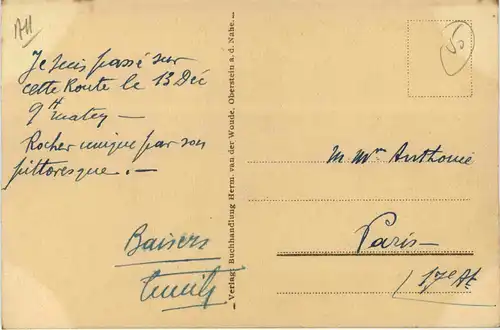 Je suis passé sur
cette Route le 13 Déc
9H
Rocher unique par son
pittoresque. —
Baisers
— Verlag: Buchhandlung Herm. van der Woude, Oberstein a. d. Nahe. —
50
M. Mme Anthonie
Paris —
17e At